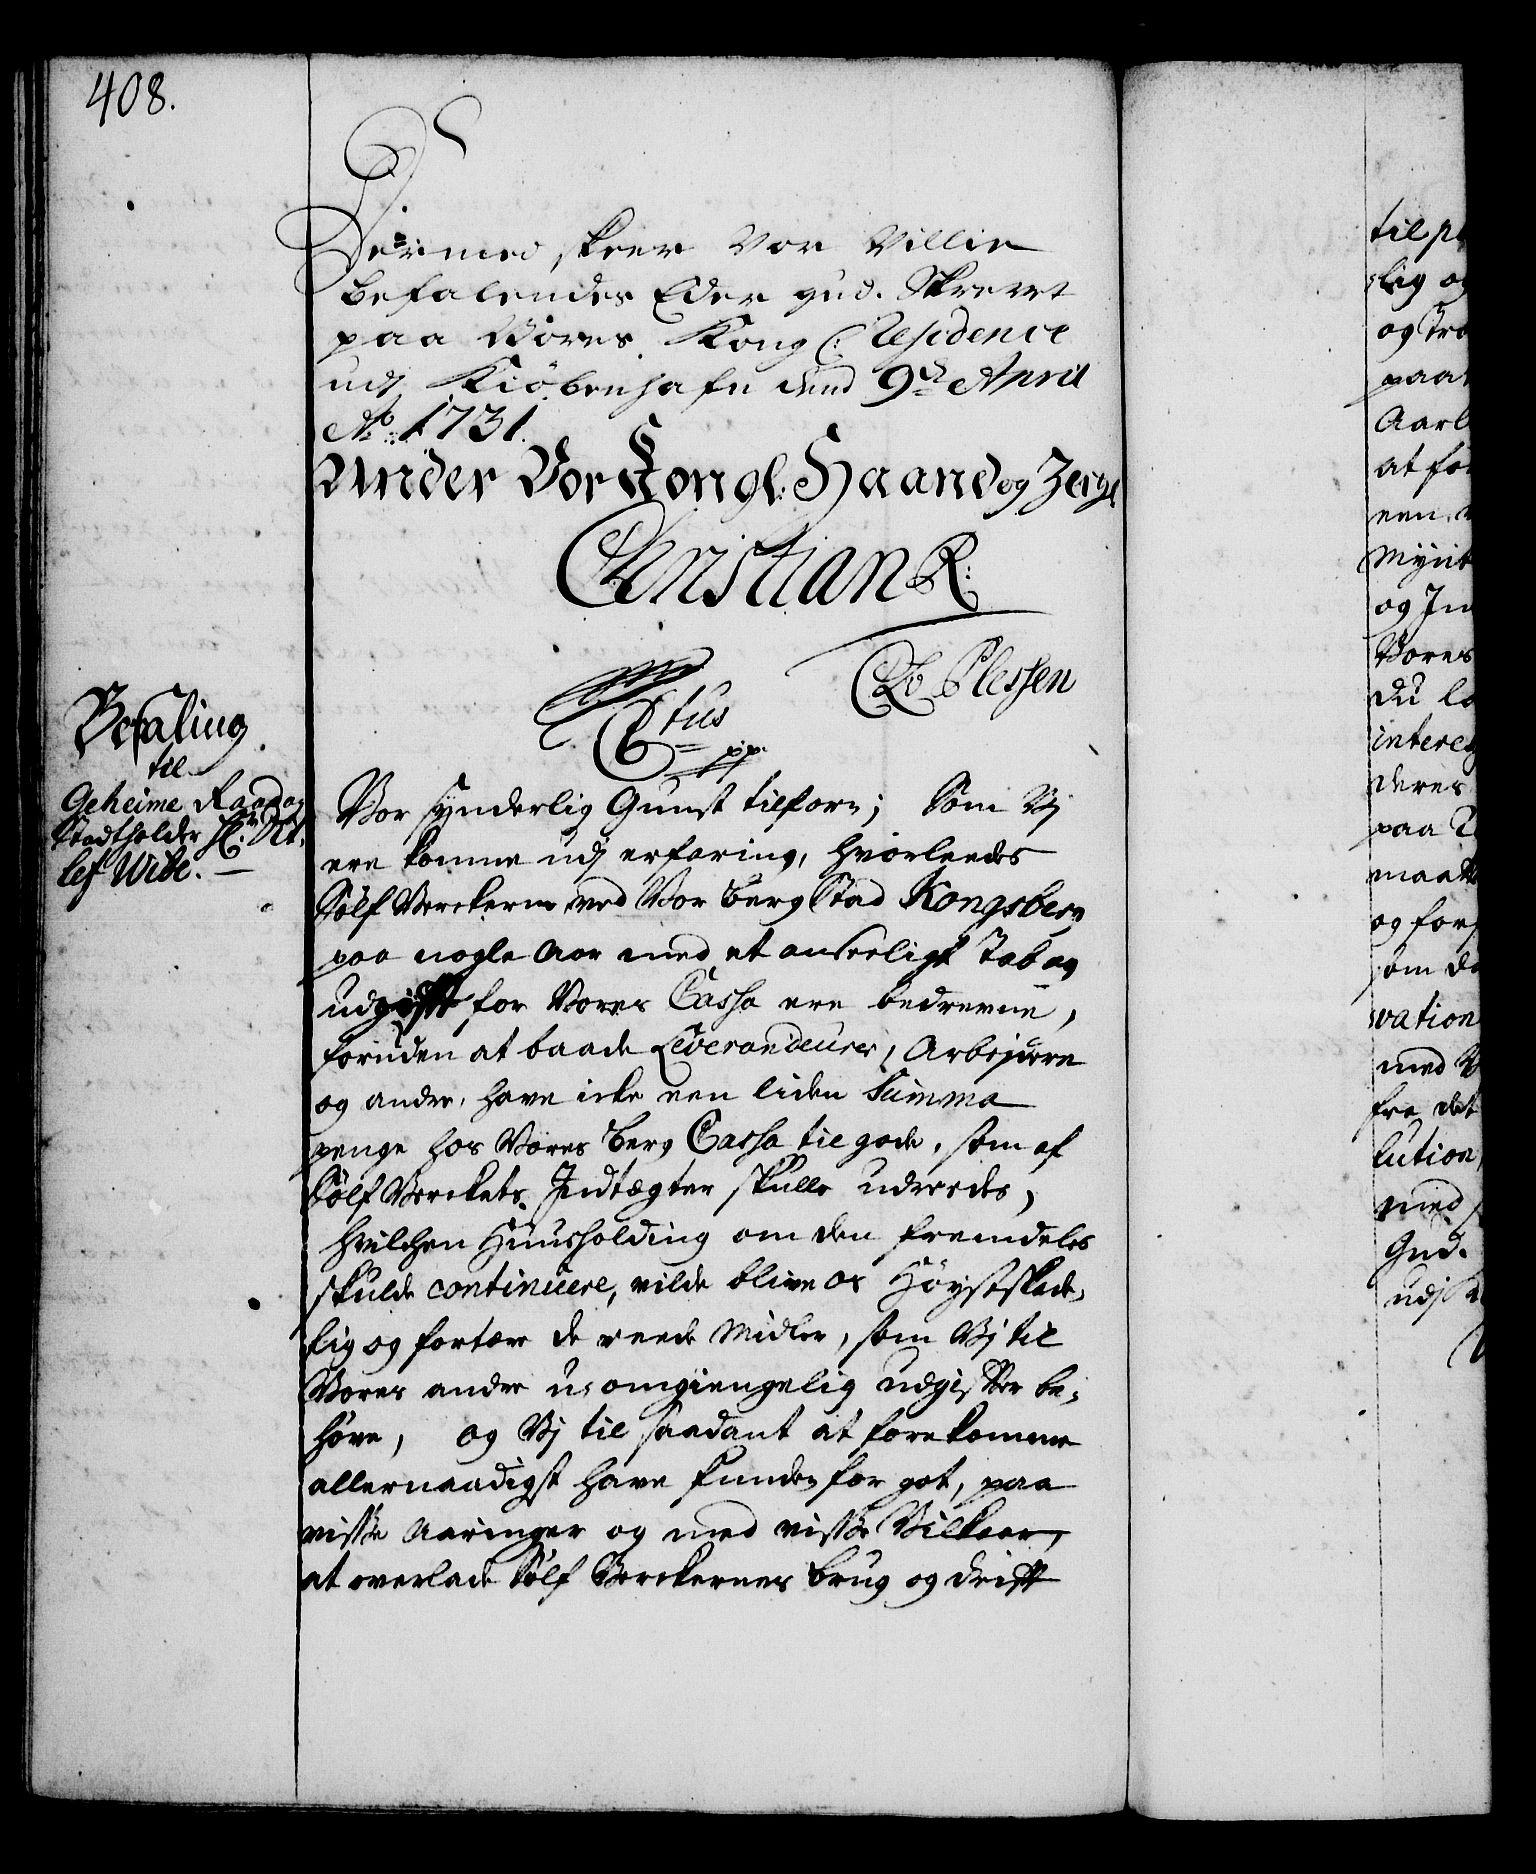 408.
Dermed skeer Vor Villie
Befalendes Eder gud. Skrevet
paa Vores Kongl: Residence
udj Kiöbenhafn dend 9de April
Ao: 1731.
Under Vor Kongl: Haand og Zeigl
Christian R:
CA v Plessen
Ctus
pp.
Befaling
til
Geheime Raad og
Stadtholder Hr: Dit,
lef Wibe. —
Vor synderlig Gunst tilforn; Som Vj
ere komne udj erfaring, hvorleedes
Sölf Verckerne ved Vor Berg Stad Kongsberg
paa nogle Aar med et anseeligt Tab og
udgifft for Vores Cassa ere bedrevne,
foruden at baade Leverandeurer, Arbejdere
og andre, have icke een liden Summa
penge hos Vores Berg Cassa til gode, som af
Sölf Verckets Indtægter skulle udreedes,
hvilchen Huusholding om den fremdeles
skulde continuere, vilde blive os Höystskade,
lig og fortære de reede Midler, som Vj til
Vores andre u-omgiengelig udgiffter be,
höve, og Vj til saadant at forekomme
allernaadigst have funden for got, paa
visse Aaringer og med visse Vilkaar,
at overlade Sölf Verckernes brug og drifft
til p
slig og
og Tro
paa
Aarl
at for
een
Mynt
og In
Vores
du la
interes
deres
paa
maatt
og for
om d
vation
med V
fra det
lution
med
Gud.
udj